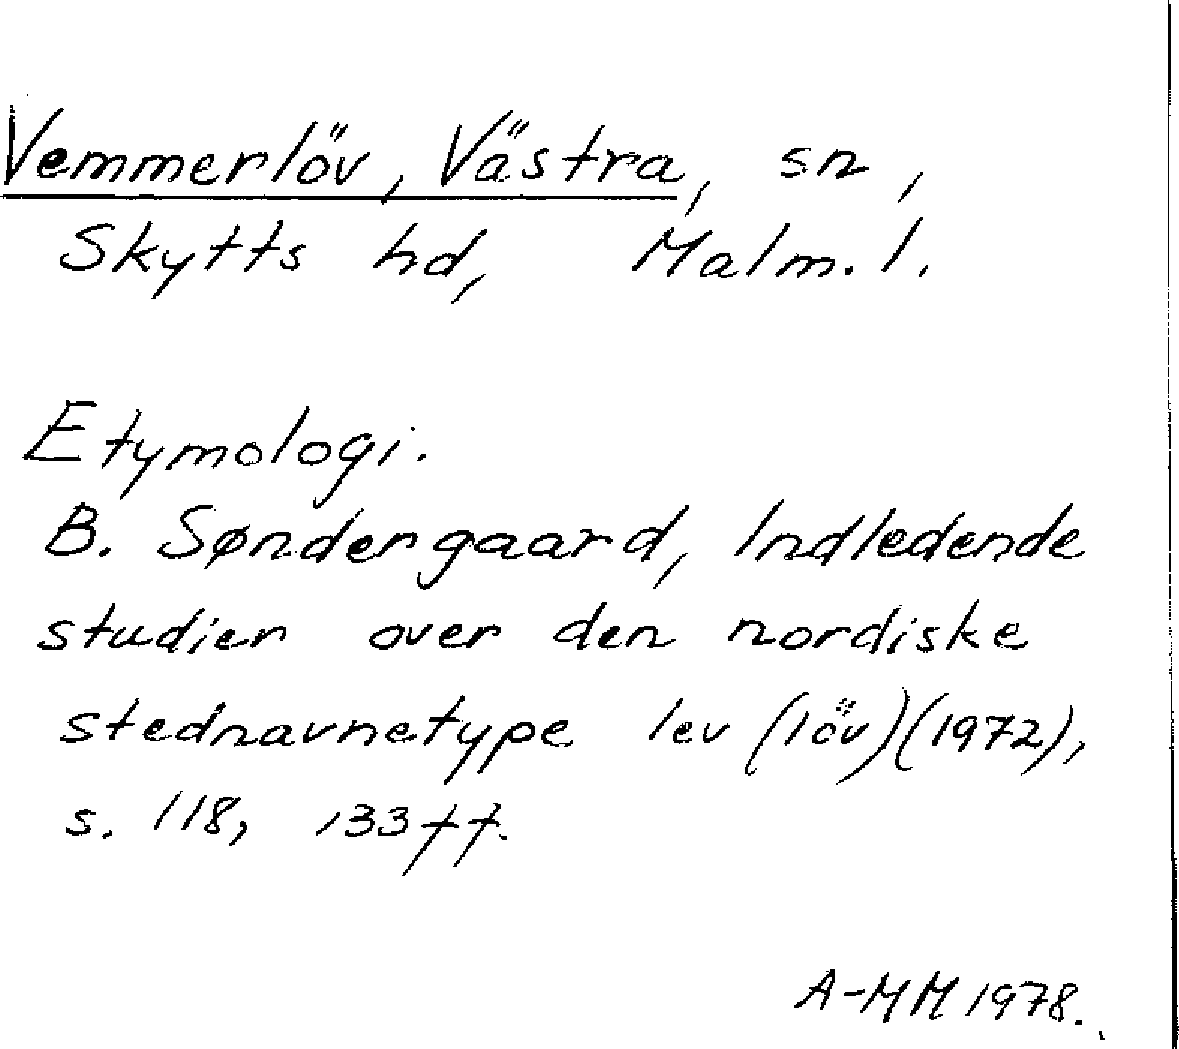 Vemmerlöv, Västra, sn,
Skytts hd, Malm. l.
Etymologi.
B. Søndergaard, Indledende
studier over den nordiske
stednavnetype lev (löv) (1972),
s. 118, 133 ff.
A-MM 1978.